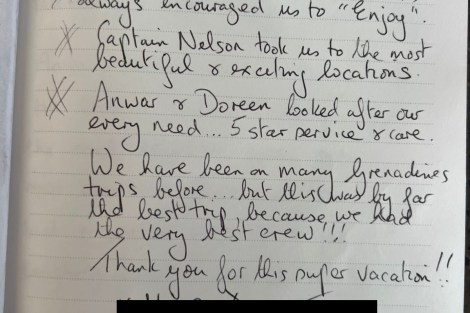 always encouraged us to "Enjoy".
Captain Nelson took us to the most
beautiful & exciting locations.
Anwar & Doreen looked after our
every need... 5 star service & care.
We have been on many Grenadines
trips before... but this was by far
the best trip, because we had
the very best crew!!!
Thank you for this super vacation!!